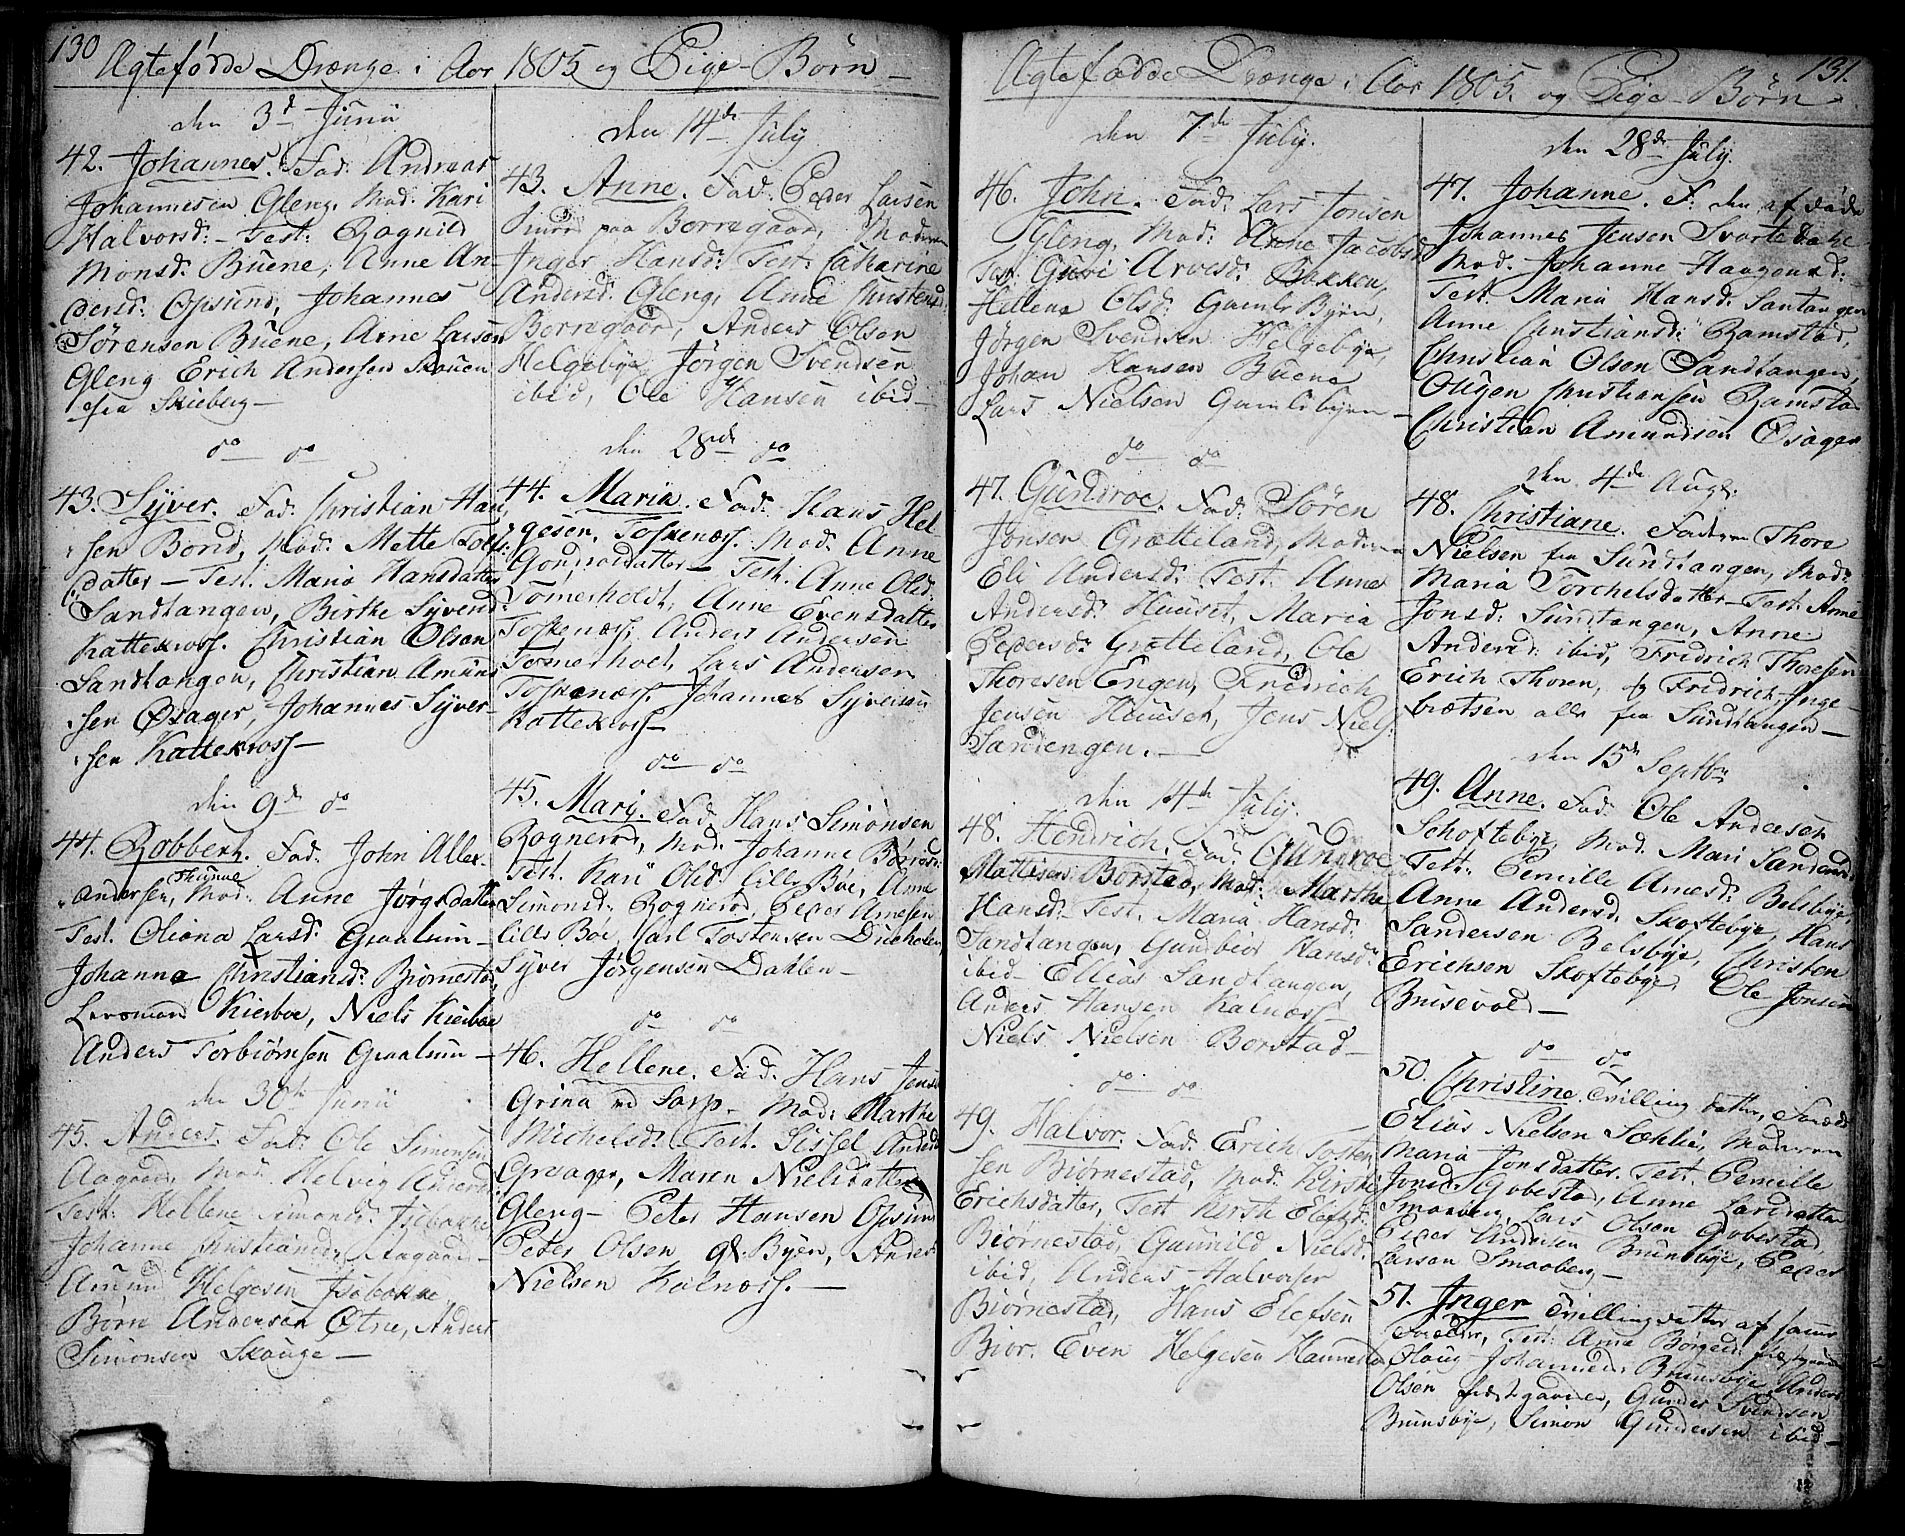 130
Ægtefødde Drænge i Aar 1805 og Pige-Børn
den 3d Junii
42. Johannes. Fad: Andreas
Johannesen Gleng. Mod: Kari
Halvorsd: – Test: Ragnild
Monsd: Buene, Anne An-
dersd: Opsund, Johannes
Sørensen Buene, Arne Larsen
Gleng Erich Andersen Skouen
fra Skieberg –
do do
43. Syver. Fad: Christian Han-
sen Bond, Mod: Mette Tolfs:
datter – Test. Maria Hansdatter
Sandtangen, Birthe Syversd:
Katterøss. Christian Olsen
Sandtangen, Christian Amund
sen Øsager, Johannes Syver-
sen Katterøss –
den 9d do
44. Robbert. Fad. John Allex-
andersen, Thune Mod: Anne Jørgsdatter
Test. Oliana Larsd: Graalum –
Johanna Christiansd: Biørnestad,
Kierboe, Niels Kierboe
Anders Torbiørnsen Graalum –
den 30te Junii
45. Anders. Fad: Ole Simensen
Aagaard, Mod: Helvig Andersd:
Test: Hellene Simonsd: Isebakke
Johanne Christiansd: Aagaard –
Amund Helgesen Isebakke
Børn Andersen Otne, Anders
Simonsen Skouge –
den 14de July
43. Anne. Fad. Peder Larsen
Smed paa Borregaard, Moderen
Inger Hansd: Test: Catharine
Andersd: Gleng, Anne Christensd:
Borregaard, Anders Olsen
Helgebye Jørgen Svendsen
ibid, Ole Hansen ibid –
den 28de do
44. Maria. Fad: Hans Hel-
gesen, Toskenæss. Mod: Anne
Gundrosdatter – Test. Anne Olsd:
Tomerholdt, Anne Evensdatter
Toskenæss, Anders Andersen
Tomerholt, Lars Andersen
Toskenæss Johannes Syversen
Katterøss –
do do
45. Mari. Fad. Hans Simonsen
Rognerød, Mod: Johanne Børresd:
Test. Kari Olsd: lille Bøe, Anne
Simonsd: Rognerød, Peder Arnesen
lille Boe, Carl Tostensen
Syver Jørgensen Dahlen –
do do
46. Hellene. Fad. Hans Jensen
Grina ved Sarp – Mod: Marthe
Michelsd: – Test. Sissel Andersd:
Greager, Maren Nielsdatter
Gleng – Peter Hansen Opsund
Peter Olsen gl. Byen, Anders
Nielsen Kalnæss. –
131.
Ægtefødde Drænge i Aar 1805. og Pige-Børn
den 7de July.
46. John. Fad: Lars Jonsen
Gleng. Mod: Anne Jacobsd:
Test. Guri Arvesd: Bakken,
Hellene Olsd: Gamle Byen,
Jørgen Svendsen Helgebye,
Johan Hansen Buene,
Lars Nielsen Gamlebyen –
do do
47. Gundroe. Fad: Søren
Jonsen Grætteland, Moderen
Eli Andersd: Test: Anne
Andersd: Huuset, Maria
Pedersd: Grætteland, Ole
Thoresen Engen, Fredrich
Jensen Huuset, Jens Niels:
Sandengen. –
den 14de July.
48. Hendrich. Fad: Gundroe
Mattisen Borsted, Mod: Marthe
Hansd: – Test. Maria Hansd:
Sandtangen, Gundbior Hansd:
ibid – Ellias Sandtangen,
Anders Hansen Kalnæss
Niels Nielsen Borstad –
do do
49. Halvor. Fad. Erich Tosten
sen Biørnestad, Mod: Kirsti
Erichsdatter, Test Kirsti Elefsd:
Biørnestad, Gunnild Nielsd:
ibid, Anders Halvorsen
Biørnestad, Hans Elefsen
Biør. Even Helgesen Hannestad
den 28de July.
47. Johanne. F: den af døde
Johannes Jensen Svartedahl
Mod. Johanne Haagensd:
Test. Maria Hansd: Santangen
Anne Christiansd: Ramstad,
Christian Olsen Sandtangen,
Christiansen Ramstad
Christian Amundsen Øsager
den 4de Aug:
48. Christiane. Faderen Thore
Nielsen fra Sundtangen, Mod:
Maria Torchelsdatter – Test. Anne
Jonsd: Sundtangen, Anne
Andersd: ibid, Fredrich Thoresen
Erich Thoren, og Fredrich Inge-
brætsen alle fra Sundtangen –
den 15de Septbr
49. Anne. Fad: Ole Andersen
Schoftebye, Mod. Mari Sandersd:
Test: Pernille Arnesd: Belsbye,
Anne Andersd. Skoftebye, Hans
Sandersen Belsbye, Christen
Erichsen Skoftebye, Ole Jonsen
Brusevold –
do do
50. Christine. Tvilling datter, Forælde
Elias Nielsen Sæhlie, Moderen
Maria Jonsdatter. Test. Pernille
Jonsd: Gobestad, Anne Larsdatter
Smaaberg, Lars Olsen Gobestad
Peder Andersen Brunsbye, Peder
Larsen Smaaberg, –
51. Inger Tvillingdatter af samme
Forældre, Test: Anne Børgersd:
Olaug Johannesd: Brunsbye Anders
Olsen Gunder Svendsen
Brunsbye, Simon Gundersen ibid –